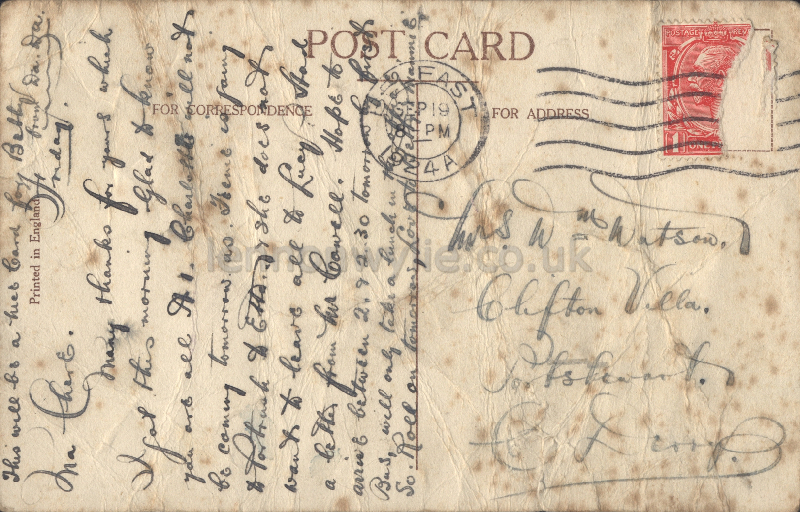 POST CARD
FOR CORRESPONDENCE
FOR ADDRESS
Printed in England
This will be a nice Card for Betty
from Da. Da.
Friday.
Ma Cher E.
Many thanks for yours which
I got this morning Glad to know
you are all A.1. Charlotte 'ill not
be coming tomorrow as Irene is going
to Portrush & Etta, she does not
want to leave all to Lucy. Had
a letter from Mr Cowell. Hope to
arrive between 2 & 2.30 tomorrow by
Bus, will only take a lunch in the
So. Roll on tomorrow,
BELFAST
SEP 19
PM
4A
POSTAGE REV
ONE
Mrs. Wm Watson.
Clifton Villa.
Portstewart.
Co Derry.
lennonwylie.co.uk